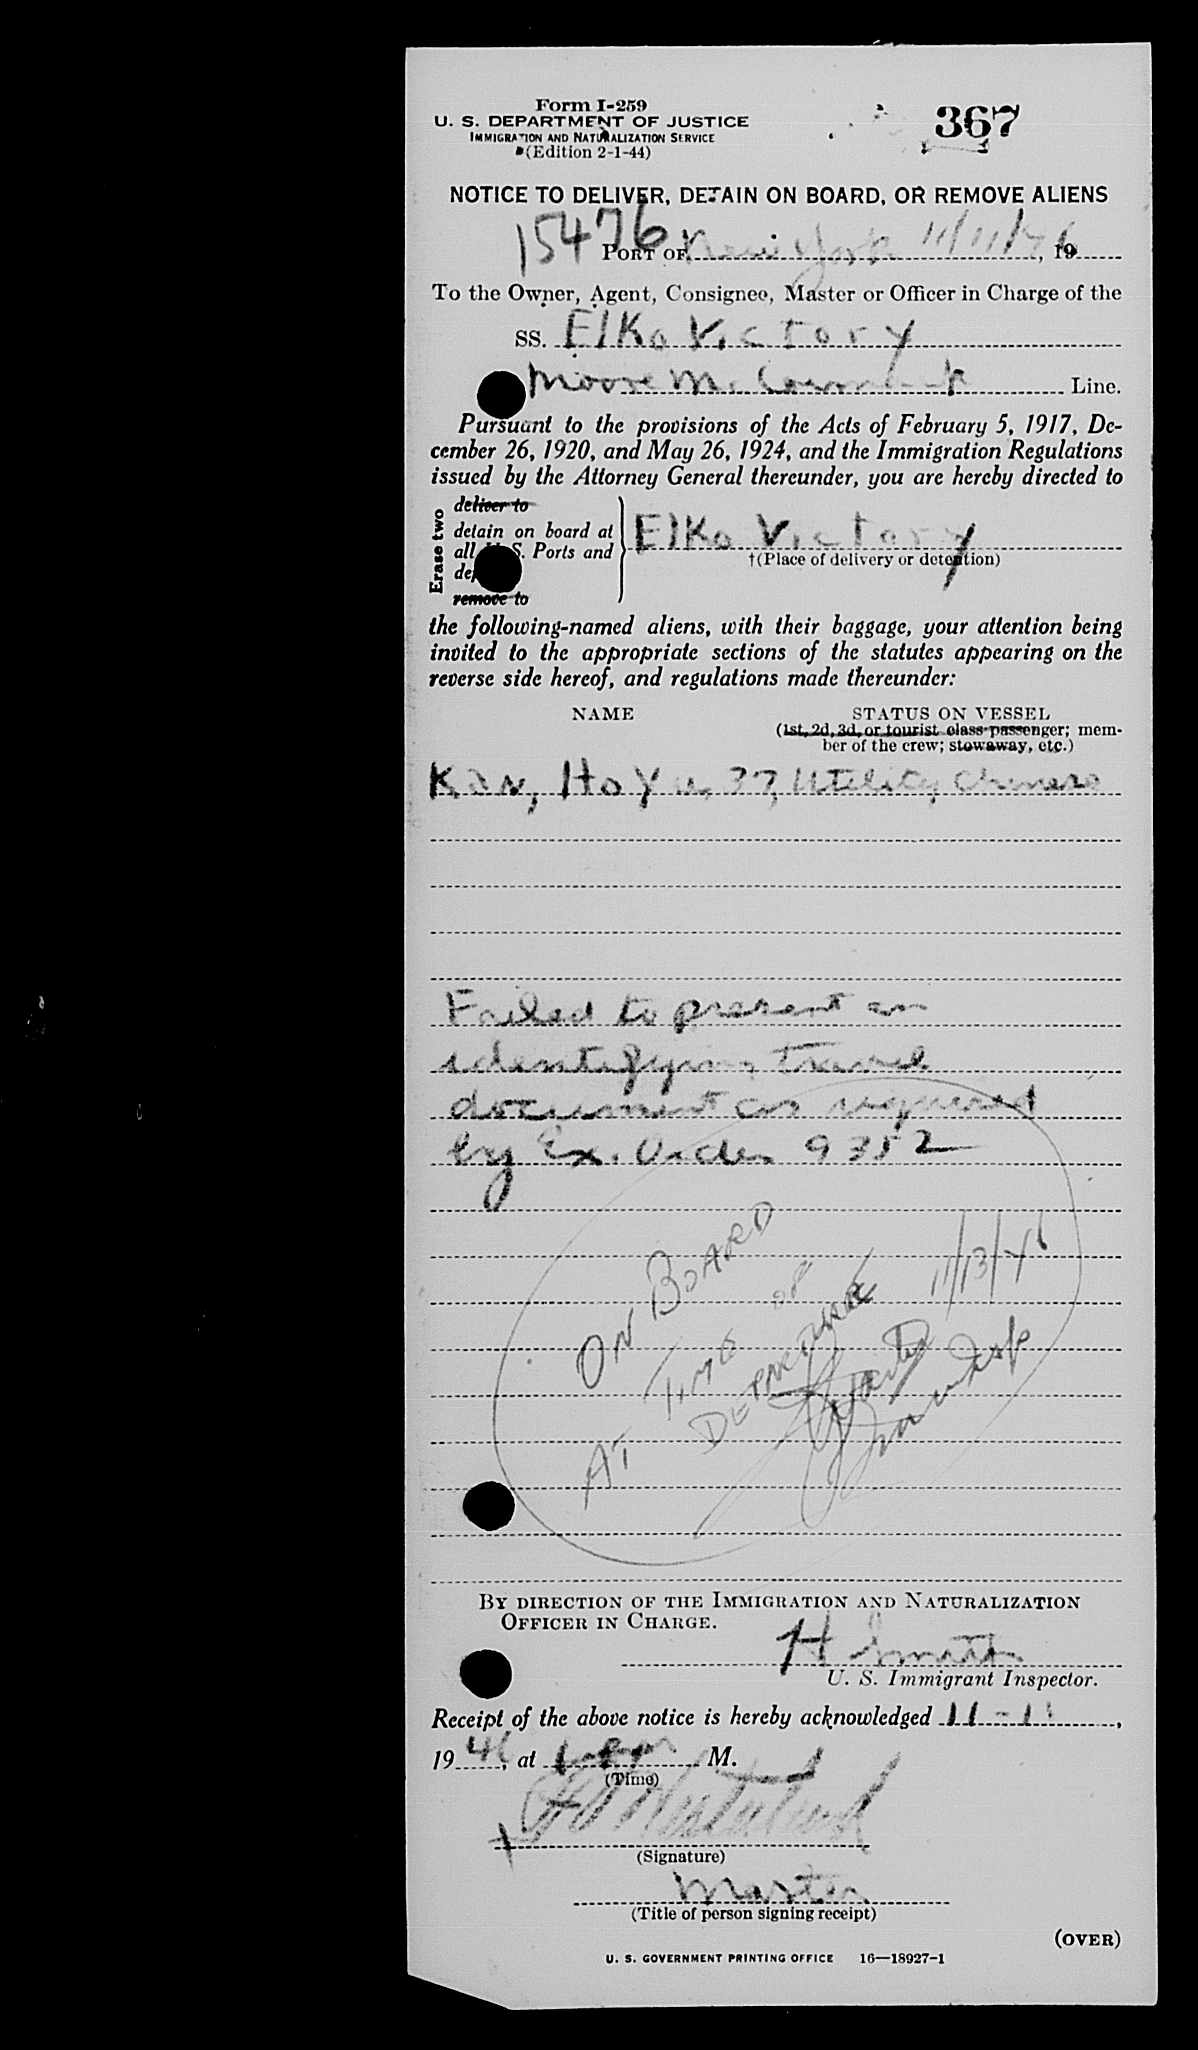 Form I-259
U. S. DEPARTMENT OF JUSTICE
IMMIGRATION AND NATURALIZATION SERVICE
(Edition 2-1-44)
367
NOTICE TO DELIVER, DETAIN ON BOARD, OR REMOVE ALIENS
15476
PORT OF New York 11/11/46, 19
To the Owner, Agent, Consignee, Master or Officer in Charge of the
SS. Elko Victory
Moore McCormack Line.
Pursuant to the provisions of the Acts of February 5, 1917, De-
cember 26, 1920, and May 26, 1924, and the Immigration Regulations
issued by the Attorney General thereunder, you are hereby directed to
Erase two
deliver to
detain on board at
all U. S. Ports and
remove to
Elko Victory
†(Place of delivery or detention)
the following-named aliens, with their baggage, your attention being
invited to the appropriate sections of the statutes appearing on the
reverse side hereof, and regulations made thereunder:
NAME
STATUS ON VESSEL
(1st, 2d, 3d, or tourist class passenger; mem-
ber of the crew; stowaway, etc.)
Kan, Ho Yu, 37, Utility, Chinese
Failed to present an
identifying travel
document as required
by Ex. Order 9352
ON BOARD
AT TIME OF
DEPARTURE 11/13/46
BY DIRECTION OF THE IMMIGRATION AND NATURALIZATION
OFFICER IN CHARGE.
H Smith
U. S. Immigrant Inspector.
Receipt of the above notice is hereby acknowledged 11-11,
1946, at M.
(Time)
(Signature)
Master
(Title of person signing receipt)
(OVER)
U. S. GOVERNMENT PRINTING OFFICE 16—18927-1